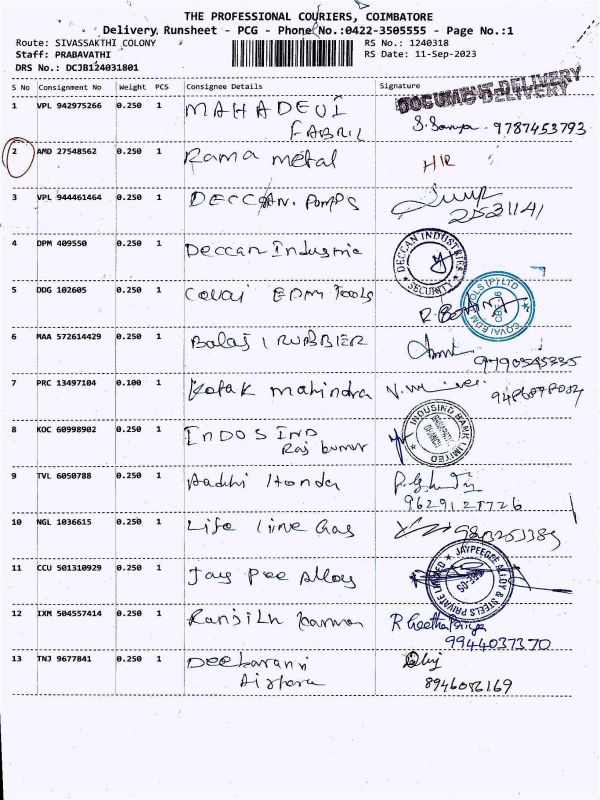 THE PROFESSIONAL COURIERS, COIMBATORE
Delivery Runsheet - PCG - Phone No.:0422-3505555 - Page No.:1
Route: SIVASSAKTHI COLONY RS No.: 1240318
Staff: PRABAVATHI RS Date: 11-Sep-2023
DRS No.: DCJB124031801
S No Consignment No Weight PCS Consignee Details Signature
DOCUMENT DELIVERY
1 VPL 942975266 0.250 1 MAHADEVI
FABRIL 9787453793
2 AMD 27548562 0.250 1 Rama metal
3 VPL 944461464 0.250 1 DECCAN. Pomps
25231141
4 DPM 409550 0.250 1 Deccan Industrie
DECCAN INDUSTRIES
SECURITY
5 DDG 102605 0.250 1 Covai EDM Tools
COVAI EDM TOOLS (P) LTD
6 MAA 572614429 0.250 1 Balaji RUBBIER
7 PRC 13497104 0.100 1 Kotak mahindra
8 KOC 60998902 0.250 1 INDOSIND
Raj kumar
INDUSIND BANK LIMITED
9 TVL 6050788 0.250 1 Aadhi Honda
10 NGL 1036615 0.250 1 Life line Gas
11 CCU 501310929 0.250 1 Jay Pee Alloy
JAYPEEGEE ALLOY & STEELS PRIVATE LIMITED
12 IXM 504557414 0.250 1 R Geetha Priya
9944037370
13 TNJ 9677841 0.250 1
8946056169